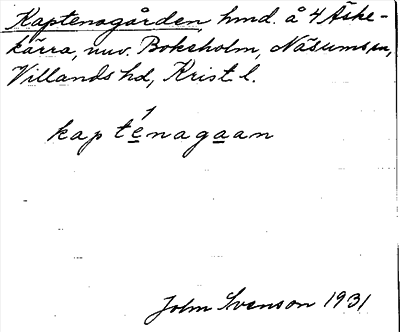 Kaptensgården, hmd. å 4 Äske-
kärra, nuv. Boksholm, Näsums sn,
Villands hd, Krist. l.
kapténagaan
John Svenson 1931